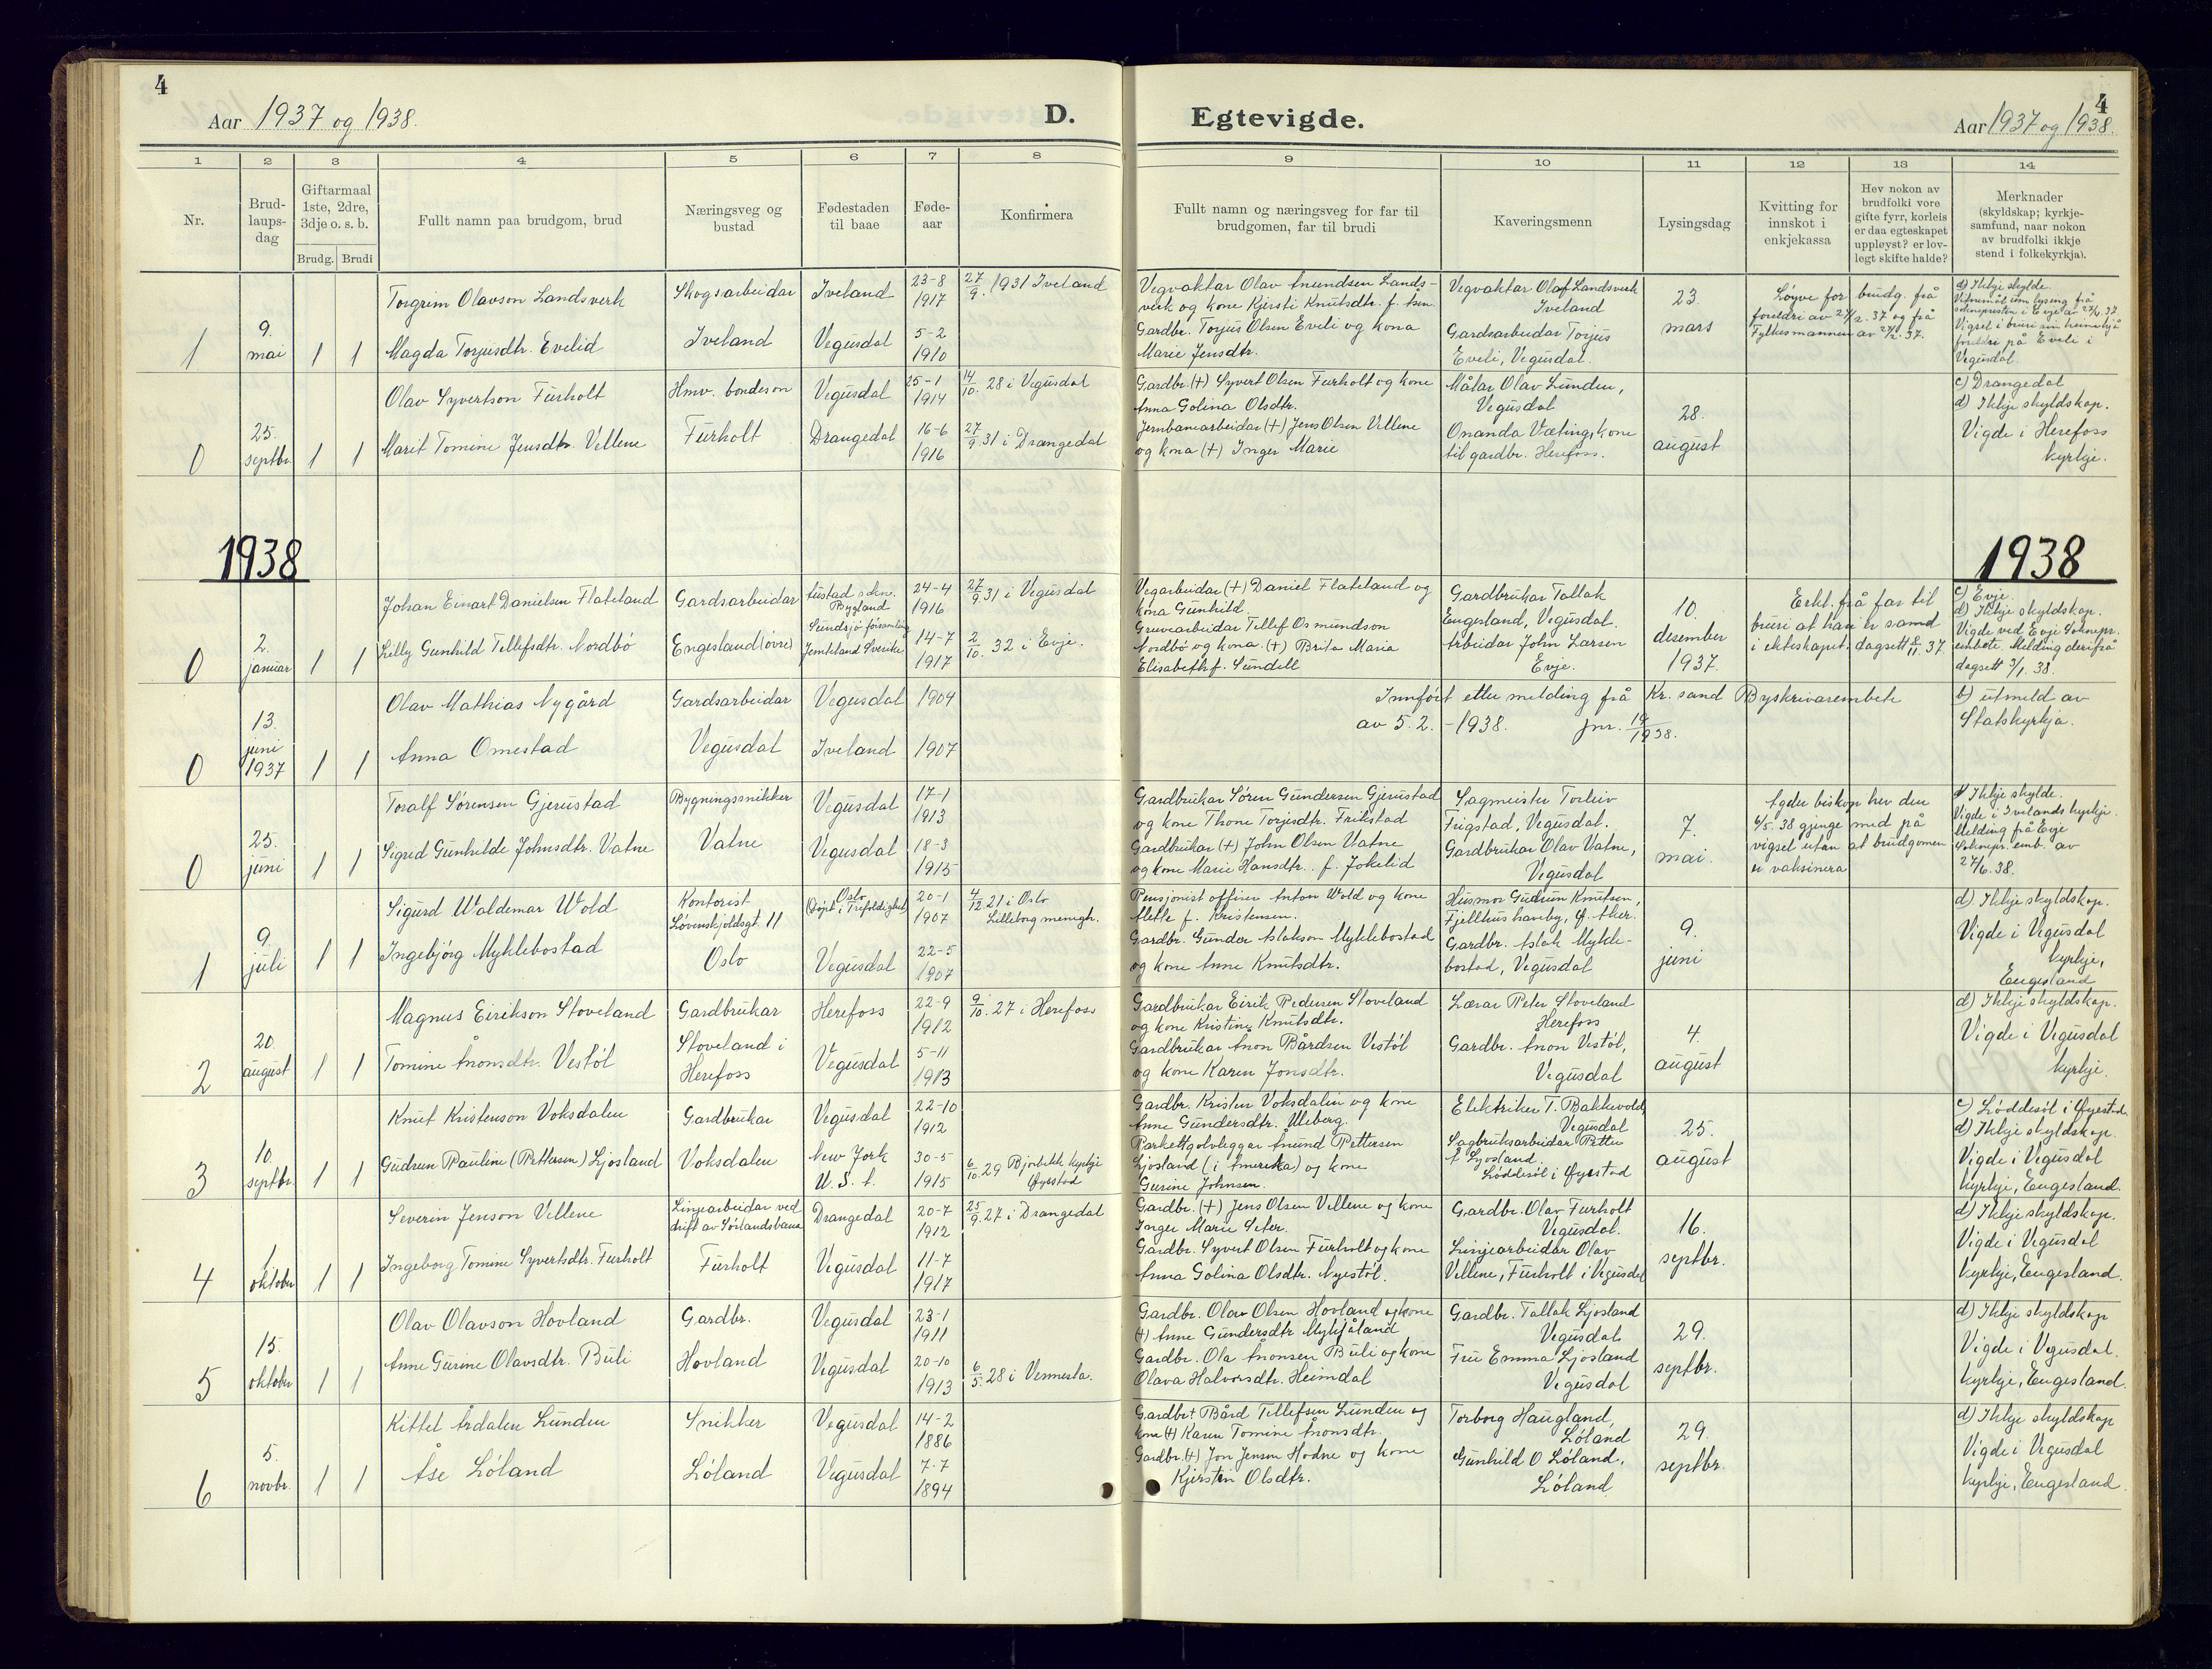 4
Aar 1937 og 1938.
D.
Egtevigde.
4
Aar 1937 og 1938.
1 2 3 4 5 6 7 8 9 10 11 12 13 14
Nr.
Brud-
laups-
dag
Giftarmaal
1ste, 2dre,
3dje o. s. b.
Brudg. Brudi
Fullt namn paa brudgom, brud
Næringsveg og
bustad
Fødestaden
til baae
Føde-
aar
Konfirmera
Fullt namn og næringsveg for far til
brudgomen, far til brudi
Kaveringsmenn
Lysingsdag
Kvitting for
innskot i
enkjekassa
Hev nokon av
brudfolki vore
gifte fyrr, korleis
er daa egteskapet
uppløyst? er lov-
legt skifte halde?
Merknader
(skyldskap; kyrkje-
samfund, naar nokon
av brudfolki ikkje
stend i folkekyrkja).
1
9.
mai
1 1
Torgrim Olavson Landsverk
Magda Torjusdtr. Evelid
Skogsarbeidar
Iveland
Iveland
Vegusdal
23-8
1917
5-2
1910
27/9. 1931 Iveland
Vegvaktar Olav Anundsen Lands-
verk og kone Kjersti Knutsdtr. f. Åsen
Gardbr. Torjus Olsen Eveli og kona
Marie Jensdtr.
Vegvaktar Olaf Landsverk
Iveland
Gardsarbeidar Torjus
Eveli, Vegusdal.
23.
mars
Løyve for brudg. frå
foreldri av 37 og frå
Fylkesmannen av 37.
d) Ikkje skylde.
Vegusdal
0
25.
septbr.
1 1
Olav Syvertson Furholt
Marit Tomine Jensdtr. Vellene
Hmv. bondeson
Furholt
Vegusdal
Drangedal
25-1
1914
16-6
1916
14/10. 28 i Vegusdal
27/9 31 i Drangedal
Gardbr. (+) Syvert Olsen Furholt og kone
Anna Golina Olsdtr.
Jernbanearbeidar (+) Jens Olsen Vellene
og kona (+) Inger Marie
Målar Olav Lunden,
Vegusdal
Onanda Væting, kone
til gardbr. Herefoss.
28.
august
c) Drangedal
d) Ikkje skyldskap.
Vigde i Herefoss
kyrkje.
1938
1938
0
2.
januar
1 1
Johan Einart Danielsen Flateland
Lilly Gunhild Tellefsdtr. Nordbö
Gardsarbeidar
Engesland (øvre)
Austad sokn.
Bygland
Sundsjö församling
Jemteland Sverike
24-4
1916
14-7
1917
27/9 31 i Vegusdal
2/10. 32 i Evje.
Vegarbeidar (+) Daniel Flateland og
kona Gunhild.
Gruvearbeidar Tellef Osmundson
Nordbö og kona (+) Brita Maria
Elisabeth f. Sundell
Gardbrukar Tallak
Engesland, Vegusdal.
Arbeidar John Larsen
Evje.
10.
desember
1937.
Erkl. frå far til
bruri at han er samd
i ekteskapet, dagsett 8/11. 37
c) Evje.
d) Ikkje skyldskap.
Vigde ved Evje Soknepr.
embete. Melding derifrå
dagsett 3/1. 38.
0
13.
juni
1937
1 1
Olav Mathias Nygård
Anna Omestad
Gardsarbeidar
Vegusdal
Vegusdal
Iveland
1904
1907
Innført etter melding frå Kr. sand Byskrivarembete
av 5. 2. - 1938. jnr. 19/1938.
b) utmeld av
Statskyrkja.
0
25.
juni
1 1
Toralf Sørensen Gjerustad
Sigrid Gunhilde Johnsdtr. Vatne
Bygningssnikker
Vatne
Vegusdal
Vegusdal
17-1
1913
18-3
1915
Gardbrukar Søren Gundersen Gjerustad
og kone Thone Torjusdtr. Frikstad
Gardbrukar (+) John Olsen Vatne
og kone Marie Hansdtr. f. Jokelid
Sagmeister Torleiv
Frigstad, Vegusdal.
Gardbrukar Olav Vatne,
Vegusdal
7.
mai.
Agder biskop hev den
6/5. 38 gjenge med på
vigsel utan at brudgomen
er vaksinera
d) Ikkje skylde.
Vigde i Ivelands kyrkje.
Melding frå Evje
Soknepr. emb. av
27/6. 38.
1
9.
juli
1 1
Sigurd Waldemar Wold
Ingebjörg Myklebostad
Kontorist
Løvenskjoldsgt. 11
Oslo
Oslo
(døpt i Trefoldighet)
Vegusdal
20-1
1907
22-5
1907
4/12 21 i Oslo
Lilleborg menigh.
Pensjonist offiser Anton Wold og kone
Alette f. Kristensen.
Gardbr. Gunder Aslakson Myklebostad
og kone Anne Knutsdtr.
Husmor Gudrun Knutsen,
Fjellhus haveby, Ø. Aker.
Gardbr. Aslak Mykle-
bostad, Vegusdal
9.
juni
d) Ikkje skyldskap.
Vigde i Vegusdal
kyrkje,
Engesland
2
20.
august
1 1
Magnus Eirikson Stoveland
Tomine Ånonsdtr. Vestöl
Gardbrukar
Stoveland i
Herefoss
Herefoss
Vegusdal
22-9
1912
5-11
1913
9/10. 27 i Herefoss
Gardbrukar Eirik Pedersen Stoveland
og kone Kristine Knutsdtr.
Gardbrukar Ånon Bårdsen Vestöl
og kone Karen Jonsdtr.
Lærar Peter Stoveland
Herefoss
Gardbr. Ånon Vestöl,
Vegusdal
4.
august
d) Ikkje skyldskap.
Vigde i Vegusdal
kyrkje.
3
10.
septbr.
1 1
Knut Kristenson Voksdalen
Gudrun Pauline (Pettersen) Ljosland
Gardbrukar
Voksdalen
Vegusdal
New Jork
U. S. A.
22-10
1912
30-5
1915
6/10. 29 Bjorbekk kyrkje
Øyestad
Gardbr. Kristen Voksdalen og kone
Anne Gundersdtr. Uleberg.
Parkettgolvleggar Anund Pettersen
Ljosland (i Amerika) og kone
Gurine Johnsen.
Elektriker T. Bakkevold,
Vegusdal
Sagbruksarbeidar Petter
A Ljosland.
Løddesöl i Øyestad
25.
august
c) Löddesöl i Øyestad.
d) Ikkje skyldskap.
Vigde i Vegusdal
kyrkje, Engesland.
4
1.
oktober
1 1
Severin Jenson Vellene
Ingeborg Tomine Syvertsdtr. Furholt
Linjearbeidar ved
drift av Sörlandsbana
Furholt
Drangedal
Vegusdal
20-7
1912
11-7
1917
25/9. 27 i Drangedal
Gardbr. (+) Jens Olsen Vellene og kone
Inger Marie Seter.
Gardbr. Syvert Olsen Furholt og kone
Anna Golina Olsdtr. Nyestöl.
Gardbr. Olav Furholt
Vegusdal.
Linjearbeidar Olav
Vellene, Furholt i Vegusdal
16.
septbr.
d) Ikkje skyldskap.
Vigde i Vegusdal
kyrkje, Engesland.
5
15.
oktober
1 1
Olav Olavson Hovland
Anne Gurine Olavsdtr. Buli
Gardbr.
Hovland
Vegusdal
Vegusdal
23-1
1911
20-10
1913
6/5. 28 i Vennesla.
Gardbr. Olav Olsen Hovland og kone
(+) Anne Gundersdtr Mykjåland
Gardbr. Ola Ånonsen Buli og kone
Olava Halvorsdtr. Heimdal
Gardbr. Tallak Ljosland
Vegusdal.
Fru Emma Ljosland
Vegusdal
29.
septbr.
d) Ikkje skyldskap
Vigde i Vegusdal.
kyrkje, Engesland.
6
5.
novbr.
1 1
Kittel Årdalen Lunden
Åse Lóland
Snikker
Lóland
Vegusdal
Vegusdal
14-2
1886
7-7
1894
Gardbr + Bård Tellefsen Lunden og
kone (+) Karen Tomine Ånonsdtr.
Gardbr. (+) Jon Jensen Hodne og kone
Kjersten Olsdtr.
Torborg Haugland,
Lóland
Gunhild O Lóland,
Lóland
29.
septbr.
d) Ikkje skyldskap
Vigde i Vegusdal
kyrkje, Engesland